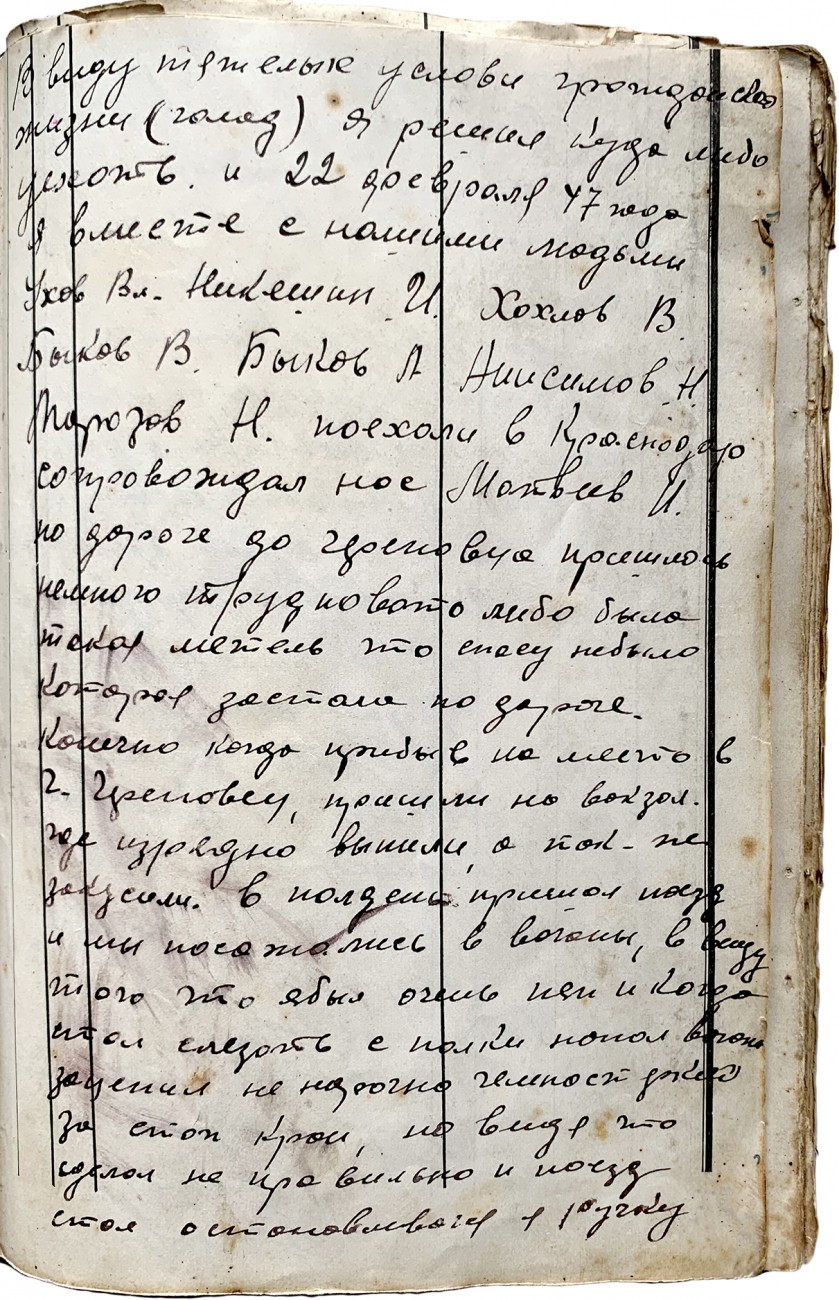 В виду тяжелых услови гражданской
жизни (голод) я решил куда либо
уехать. и 22 февраля 47 года
я вместе с нашими людьми
Ухов Вл. Никешин И. Хохлов В.
Быков В. Быков А Анисимов Н.
Марозов Н. поехали в Краснодар
сопровождал нас Матвеев И.
по дароге до Череповца пришлось
немного трудновато либо была
такая метель что спасу небыло
которая застала по дароге.
Конечно когда прибыв на место в
г. Череповец, пришли на вокзал.
где изрядно выпили, а так-же
закусили. в полдень пришол поезд
и мы посажались в вагоны, в виду
того что ябыл очень пян и когда
стал слезать с полки попол вагона
зацепил не нарочно
за стоп кран, но видя что
сделал не правильно и поезд
стал останавливатся я ручку